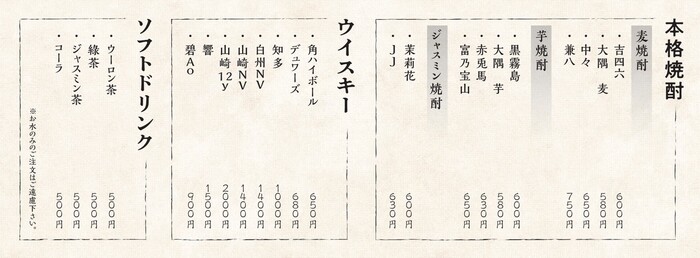 本格焼酎
麦焼酎
・吉四六 600円
・大隅 麦 580円
・中々 650円
・兼八 750円
芋焼酎
・黒霧島 600円
・大隅 芋 580円
・赤兎馬 630円
・富乃宝山 650円
ジャスミン焼酎
・茉莉花 600円
・JJ 630円
ウイスキー
・角ハイボール 650円
・デュワーズ 680円
・知多 1000円
・白州NV 1400円
・山崎NV 1400円
・山崎12y 2000円
・響 1500円
・碧Ao 900円
ソフトドリンク
・ウーロン茶 500円
・緑茶 500円
・ジャスミン茶 500円
・コーラ 500円
※お水のみのご注文はご遠慮下さい。